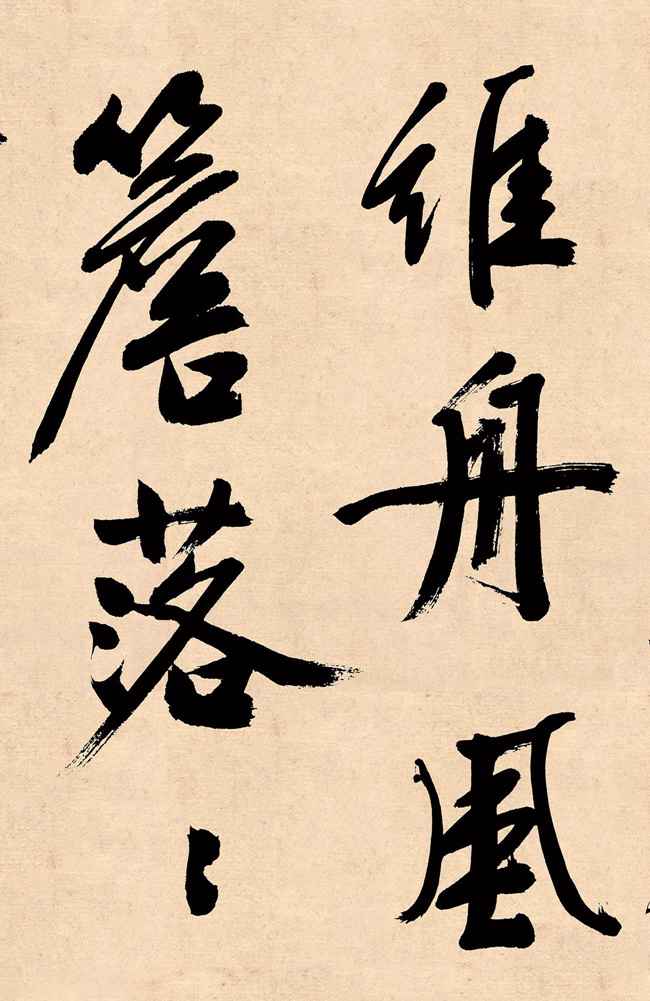 維舟風
簷落〻